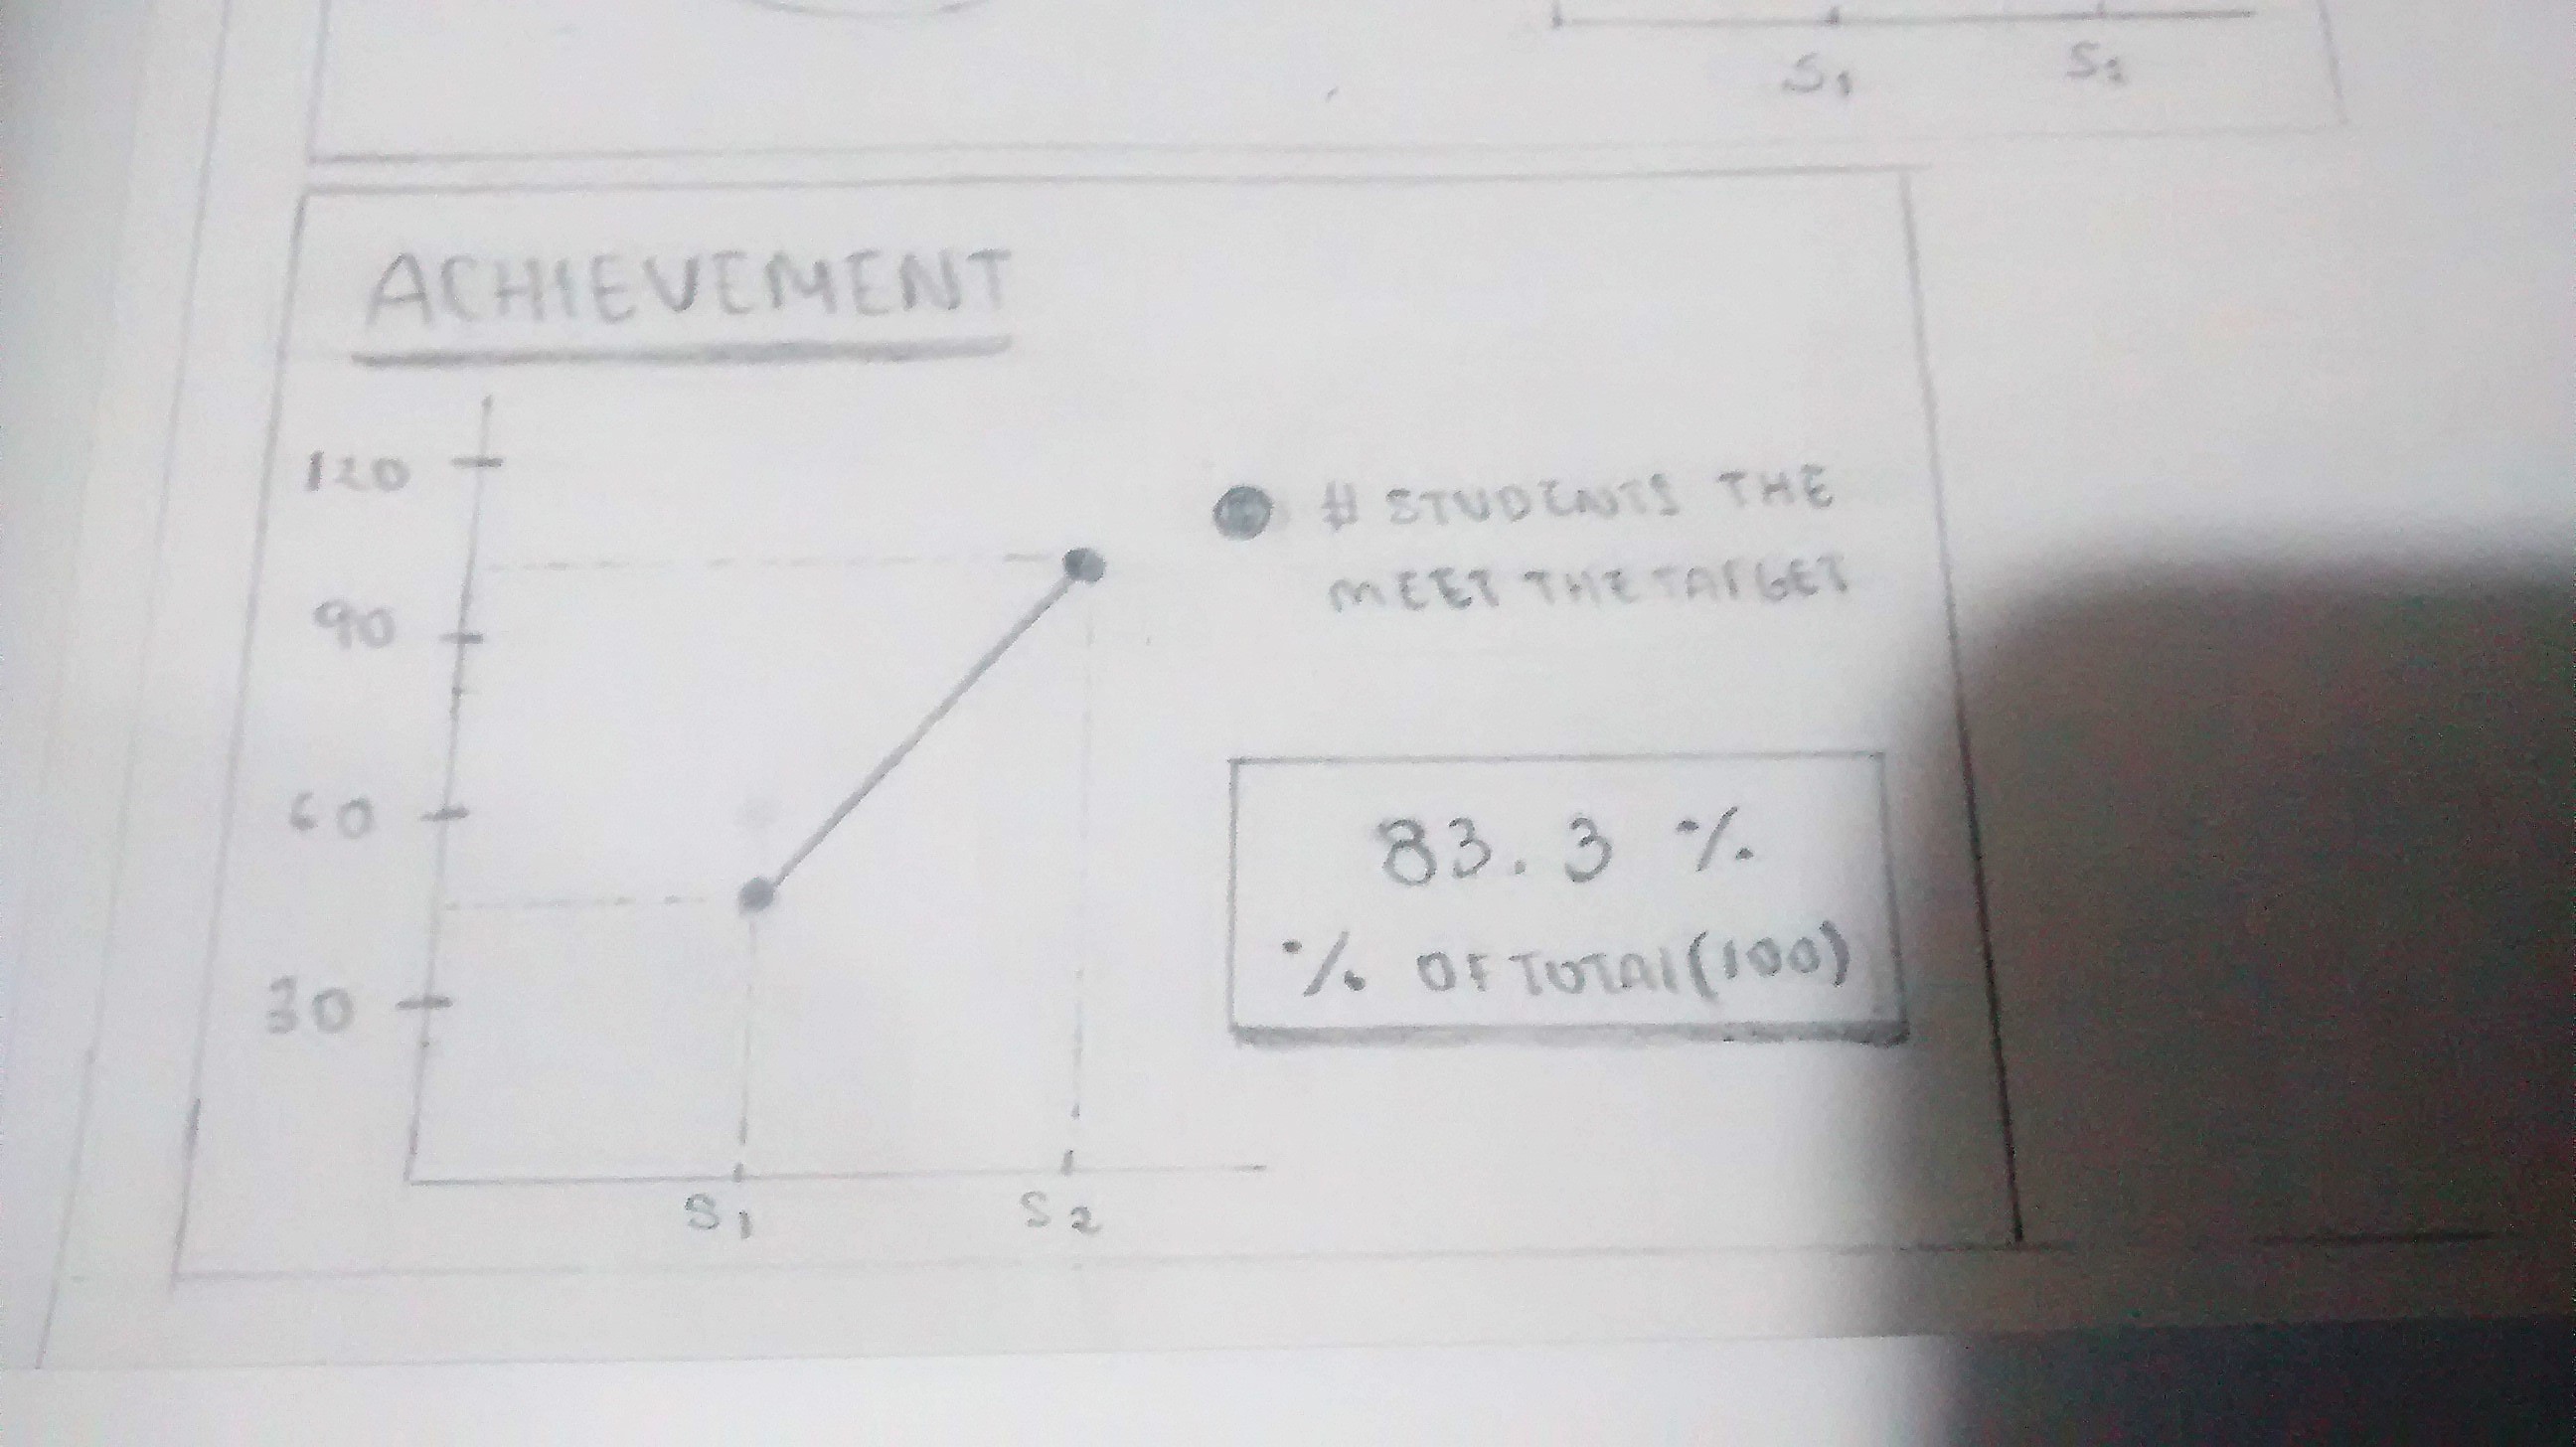 S1 S2
ACHIEVEMENT
120
90
60
30
# STUDENTS THE
MEET THE TARGET
83.3 %
% OF TOTAL (100)
S1 S2